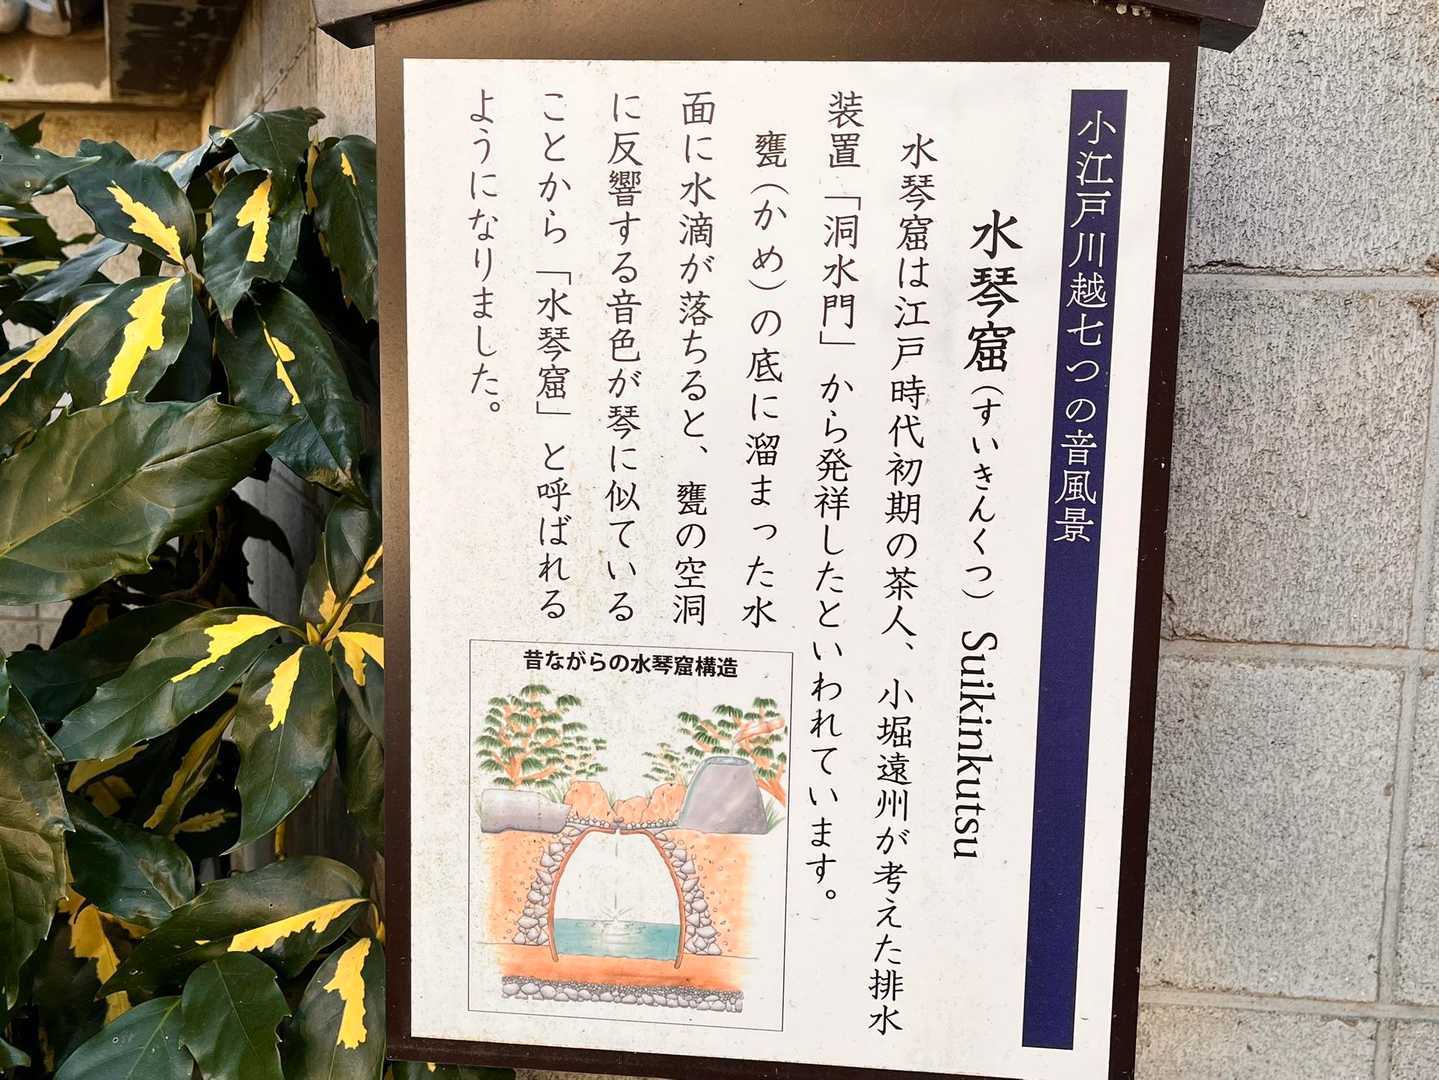 小江戸川越七つの音風景
水琴窟(すいきんくつ) Suikinkutsu
水琴窟は江戸時代初期の茶人、小堀遠州が考えた排水
装置「洞水門」から発祥したといわれています。
甕(かめ)の底に溜まった水
面に水滴が落ちると、甕の空洞
に反響する音色が琴に似ている
ことから「水琴窟」と呼ばれる
ようになりました。
昔ながらの水琴窟構造